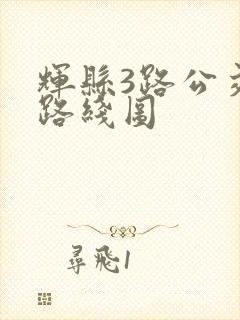 輝縣3路公交
路綫圖
尋飛1